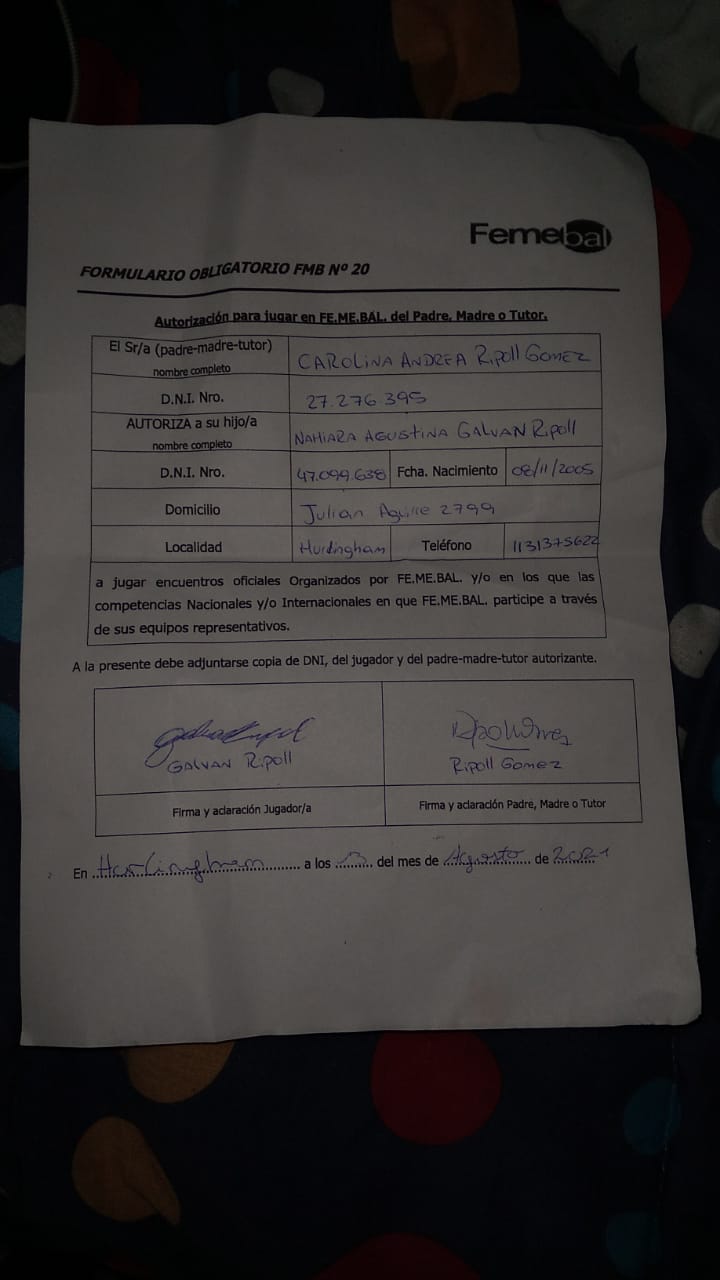 Femebal
FORMULARIO OBLIGATORIO FMB Nº 20
Autorización para jugar en FE.ME.BAL. del Padre, Madre o Tutor.
El Sr/a (padre-madre-tutor) nombre completo CAROLINA ANDREA Ripoll GOMEZ
D.N.I. Nro. 27.276.395
AUTORIZA a su hijo/a nombre completo NAHIARA AGUSTINA GALVAN Ripoll
D.N.I. Nro. 47.099.638 Fcha. Nacimiento 08/11/2005
Domicilio Julian Aguirre 2799
Localidad Hurlingham Teléfono 1131375622
a jugar encuentros oficiales Organizados por FE.ME.BAL. y/o en los que las
competencias Nacionales y/o Internacionales en que FE.ME.BAL. participe a través
de sus equipos representativos.
A la presente debe adjuntarse copia de DNI, del jugador y del padre-madre-tutor autorizante.
GALVAN Ripoll Ripoll Gomez
Firma y aclaración Jugador/a Firma y aclaración Padre, Madre o Tutor
En Hurlingham a los 13 del mes de Agosto de 2021